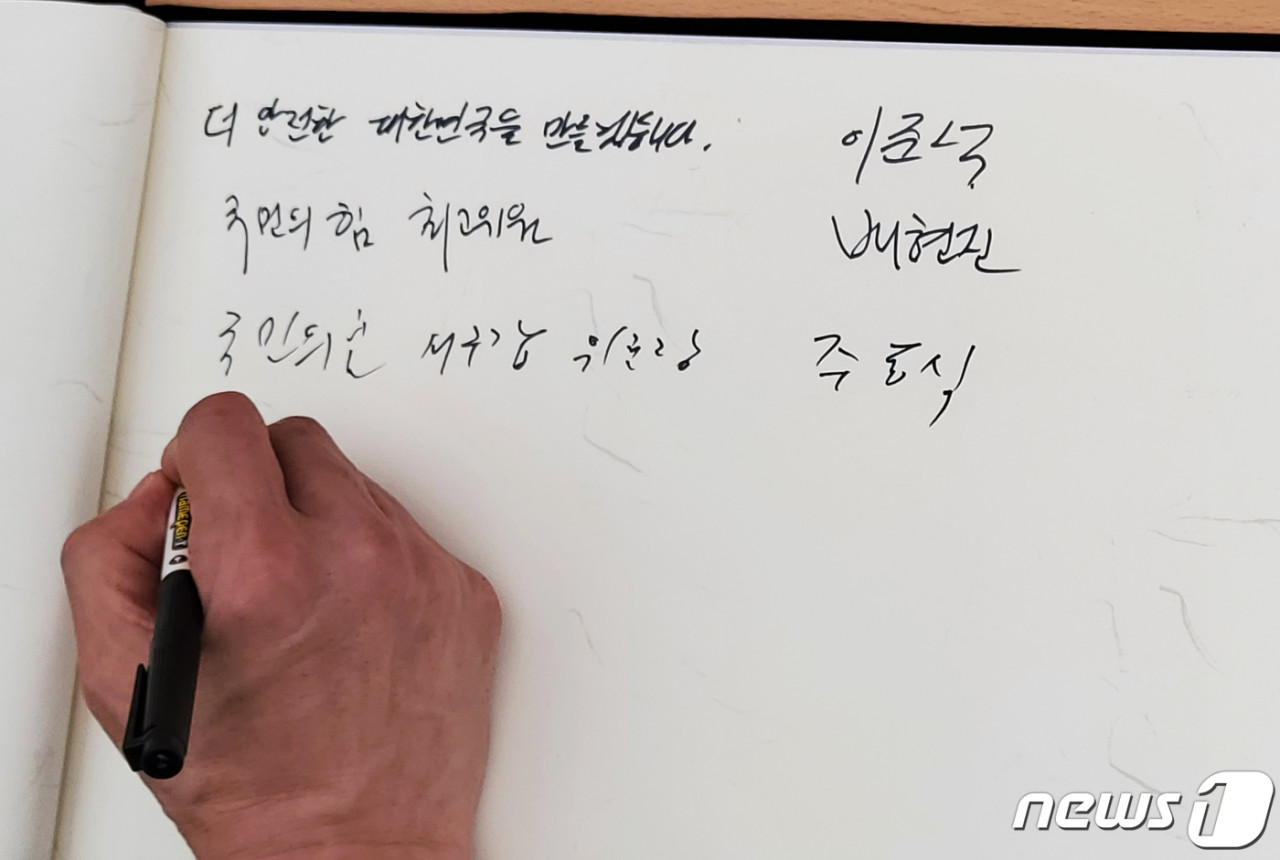 더 안전한 대한민국을 만들겠습니다. 이준석
국민의힘 최고위원 배현진
국민의힘 위원장 주호식
namepen
news1